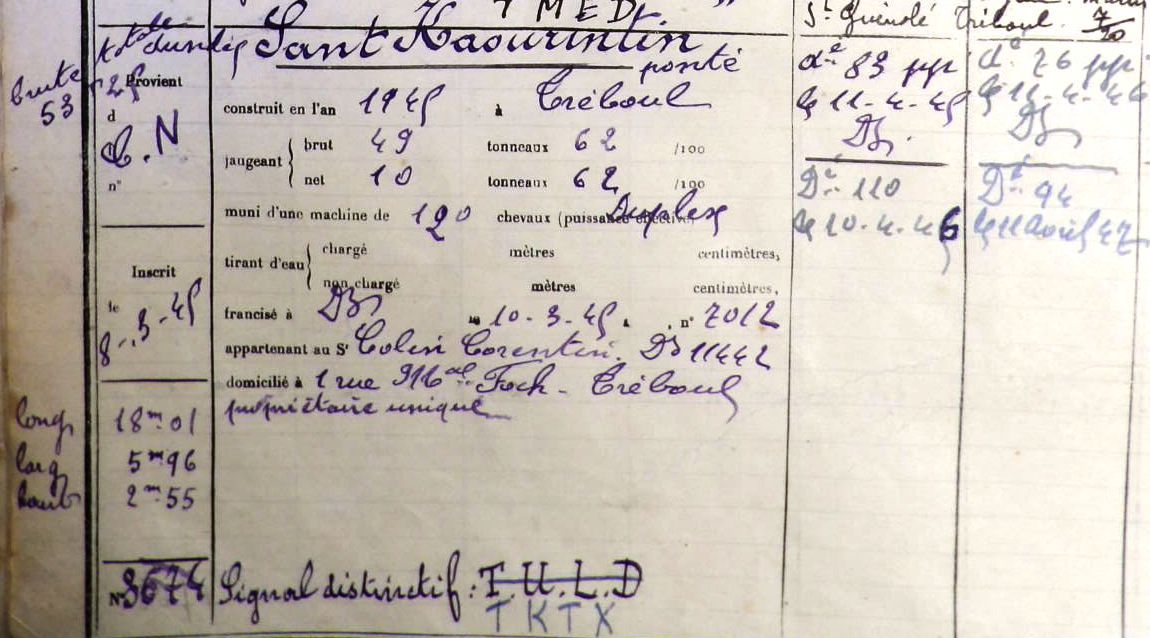 T M E D
St Guénolé Tréboul
7/20
dundee Sant Kaourintin
ponté
brute
53
Provient
d
C.N
n°
construit en l'an 1945 à Tréboul
jaugeant brut 49 tonneaux 62 /100
net 10 tonneaux 62 /100
muni d'une machine de 120 chevaux (puissance effective) Duplex
tirant d'eau chargé mètres centimètres,
non chargé mètres centimètres,
Inscrit
le
8-3-45
francisé à DZ le 10-3-45 à n° 7012
appartenant au Sr Colin Corentin. DZ 11442
domicilié à 1 rue Mal Foch - Tréboul
propriétaire unique
long 18m01
larg 5m96
haut 2m55
N° 3674
Signal distinctif : T.U.L.D
T K T X
dé 83 pp
le 11-4-45
DZ
Dé 110
le 10-4-46
dé 76 pp
le 11-4-46
DZ
Dé 94
le 11 avril 47